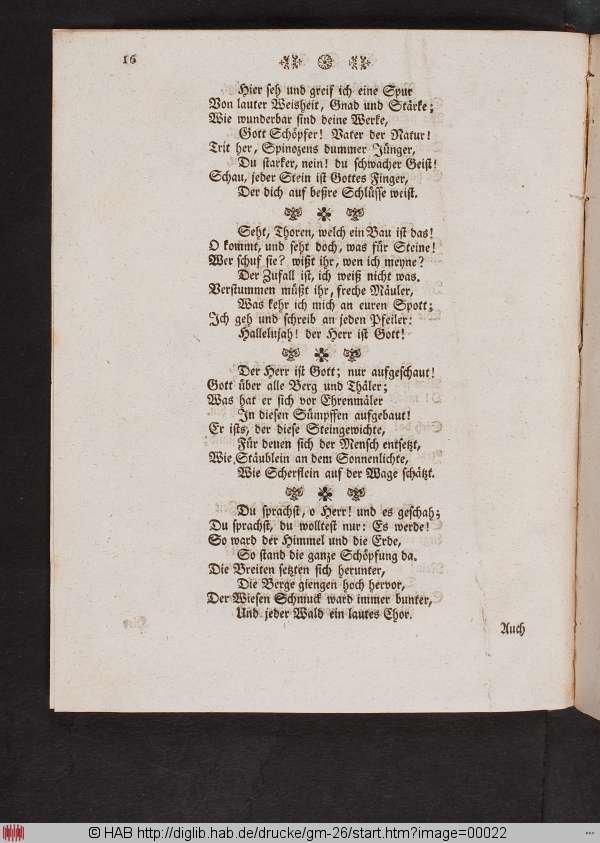 16
Hier seh und greif ich eine Spur
Von lauter Weisheit, Gnad und Stärke;
Wie wunderbar sind deine Werke,
Gott Schöpfer! Vater der Natur!
Trit her, Spinozens dummer Jünger,
Du starker, nein! du schwacher Geist!
Schau, jeder Stein ist Gottes Finger,
Der dich auf beßre Schlüsse weist.
Seht, Thoren, welch ein Bau ist das!
O kommt, und seht doch, was für Steine!
Wer schuf sie? wißt ihr, wen ich meyne?
Der Zufall ist, ich weiß nicht was.
Verstummen müßt ihr, freche Mäuler,
Was kehr ich mich an euren Spott;
Ich geh und schreib an jeden Pfeiler:
Hallelujah! der Herr ist Gott!
Der Herr ist Gott; nur aufgeschaut!
Gott über alle Berg und Thäler;
Was hat er sich vor Ehrenmäler
In diesen Sümpffen aufgebaut!
Er ists, der diese Steingewichte,
Für denen sich der Mensch entsetzt,
Wie Stäublein an dem Sonnenlichte,
Wie Scherflein auf der Wage schätzt.
Du sprachst, o Herr! und es geschah;
Du sprachst, du wolltest nur: Es werde!
So ward der Himmel und die Erde,
So stand die ganze Schöpfung da.
Die Breiten setzten sich herunter,
Die Berge giengen hoch hervor,
Der Wiesen Schmuck ward immer bunter,
Und jeder Wald ein lautes Chor.
Auch
© HAB http://diglib.hab.de/drucke/gm-26/start.htm?image=00022